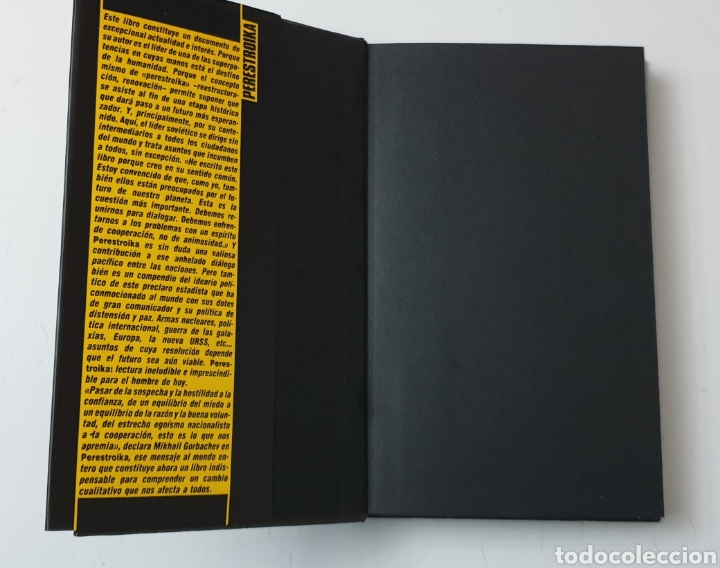 Este libro constituye un documento de
excepcional actualidad e interés. Porque
su autor es el líder de una de las superpo-
tencias en cuyas manos está el destino
de la humanidad. Porque el concepto
mismo de «perestroika» -reestructura-
ción, renovación- permite suponer que
se asiste al fin de una etapa histórica
que dará paso a un futuro más esperan-
zador. Y, principalmente, por su conte-
nido. Aquí, el líder soviético se dirige sin
intermediarios a todos los ciudadanos
del mundo y trata asuntos que incumben
a todos, sin excepción. «He escrito este
libro porque creo en su sentido común.
Estoy convencido de que, como yo, tam-
bién ellos están preocupados por el fu-
turo de nuestro planeta. Esta es la
cuestión más importante. Debemos re-
unirnos para dialogar. Debemos enfren-
tarnos a los problemas con un espíritu
de cooperación, no de animosidad.» Y
Perestroika es sin duda una valiosa
contribución a ese anhelado diálogo
pacífico entre las naciones. Pero tam-
bién es un compendio del ideario polí-
tico de este preclaro estadista que ha
conmocionado al mundo con sus dotes
de gran comunicador y su política de
distensión y paz. Armas nucleares, polí-
tica internacional, guerra de las gala-
xias, Europa, la nueva URSS, etc...
asuntos de cuya resolución depende
que el futuro sea aún viable. Peres-
troika: lectura ineludible e imprescindi-
ble para el hombre de hoy.
«Pasar de la sospecha y la hostilidad a la
confianza, de un equilibrio del miedo a
un equilibrio de la razón y la buena volun-
tad, del estrecho egoísmo nacionalista
a la cooperación, esto es lo que nos
apremia», declara Mikhail Gorbachev en
Perestroika, ese mensaje al mundo en-
tero que constituye ahora un libro indis-
pensable para comprender un cambio
cualitativo que nos afecta a todos.
PERESTROIKA
todocoleccion